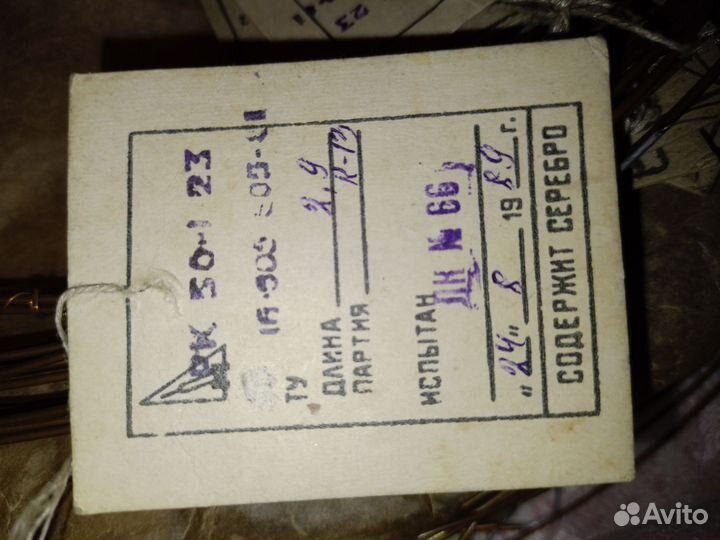 РК 50-1 23
ТУ 16.505
ДЛИНА 2,9
ПАРТИЯ К-13
ИСПЫТАН
ПК № 66
„24" 8 1989 г.
СОДЕРЖИТ СЕРЕБРО
23
Avito